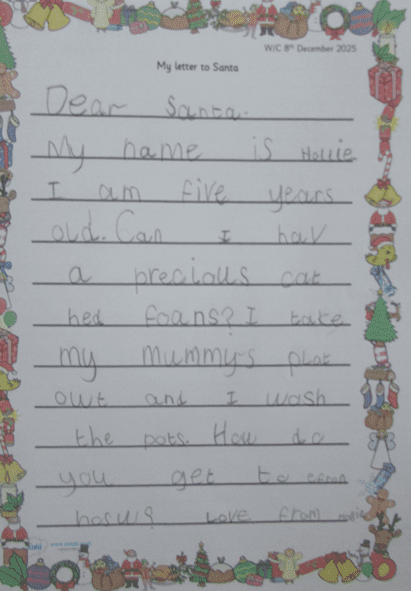 W/C 8th December 2025
My letter to Santa
Dear Santa.
My name is Hollie
I am five years
old. Can I hav
a precious cat
hed foans? I take
my mummy's plat
owt and I wash
the pots. How do
you get to
hosus? Love from Hollie